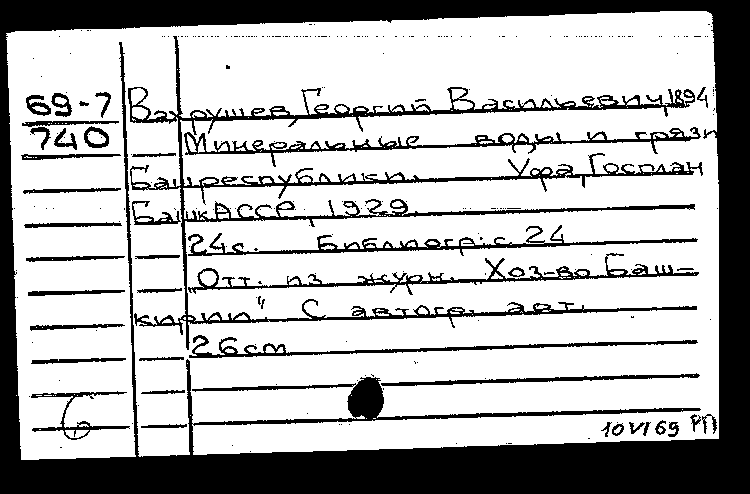 69-7 Вахрушев, Георгий Васильевич, 1894
740 Минеральные воды и грязи
Башреспублики. Уфа, Госплан
БашкАССР, 1929.
24 с. Библиогр.: с. 24
Отт. из журн. "Хоз-во Баш-
кирии". С автогр. авт.
26 cm
6
10 VI 69 РП